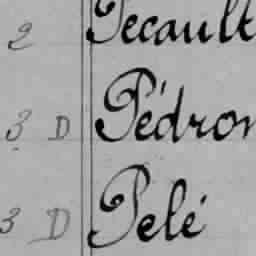 2 Pecault
3 D Pédron
3 D Pelé